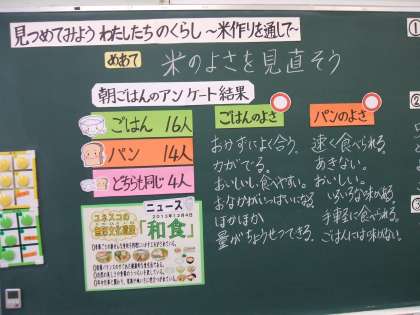 見つめてみよう わたしたちのくらし ～米作りを通して～
めあて
米のよさを見直そう
朝ごはんのアンケート結果
ごはん 16人
パン 14人
どちらも同じ 4人
ごはんのよさ
おかずによく合う。
力がでる。
おいしい、食べやすい。
おなかがいっぱいになる
ほかほか
量がちょうせつできる。
パンのよさ
速く食べられる。
あきない。
おいしい。
いろいろな味がある
手軽に食べられる。
ごはんには味がない。
ニュース
2013年12月4日
ユネスコの
無形文化遺産
「和食」
①
②
③